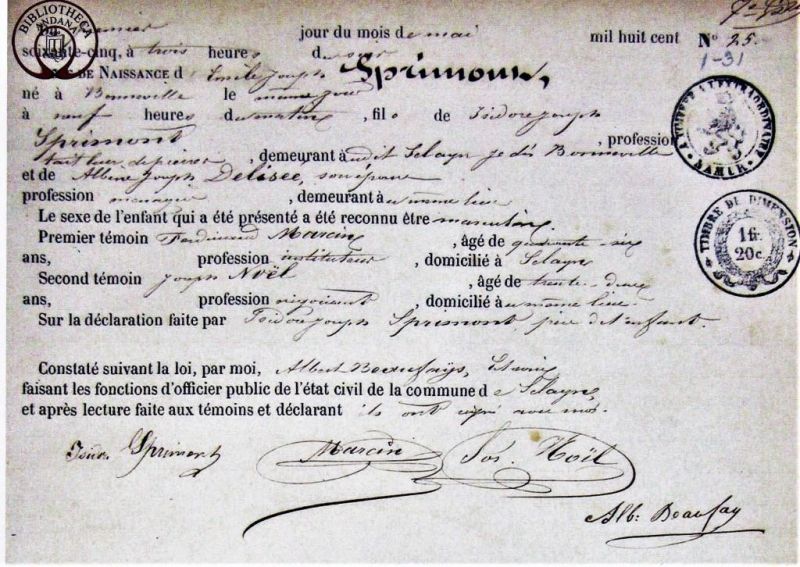 BIBLIOTHECA ANDANA
jour du mois de mai mil huit cent
soixante-cinq, à trois heures du soir N° 25.
1-31
DE NAISSANCE d' Emile Joseph Sprimont,
né à Bonneville le même jour
à neuf heures du matin, fils de Isidore Joseph
Sprimont, profession
tailleur de pierres, demeurant à Bonneville
et de Albine Joseph Delisée, son épouse
profession ménagère, demeurant au même lieu
Le sexe de l'enfant qui a été présenté a été reconnu être masculin.
Premier témoin Ferdinand Marcin, âgé de quarante-six
ans, profession instituteur, domicilié à Selayn
Second témoin Joseph Noël, âgé de trente-
ans, profession négociant, domicilié au même lieu.
Sur la déclaration faite par Isidore Joseph Sprimont père de l'enfant.
Constaté suivant la loi, par moi, Albert Beaufays,
faisant les fonctions d'officier public de l'état civil de la commune de Selayn,
et après lecture faite aux témoins et déclarant ils ont signé avec moi.
Isid. Sprimont Marcin Jos. Noël
Alb. Beaufay
TIMBRE A L'EXTRAORDINAIRE NAMUR
TIMBRE DE DIMENSION 1 fr. 20 c.